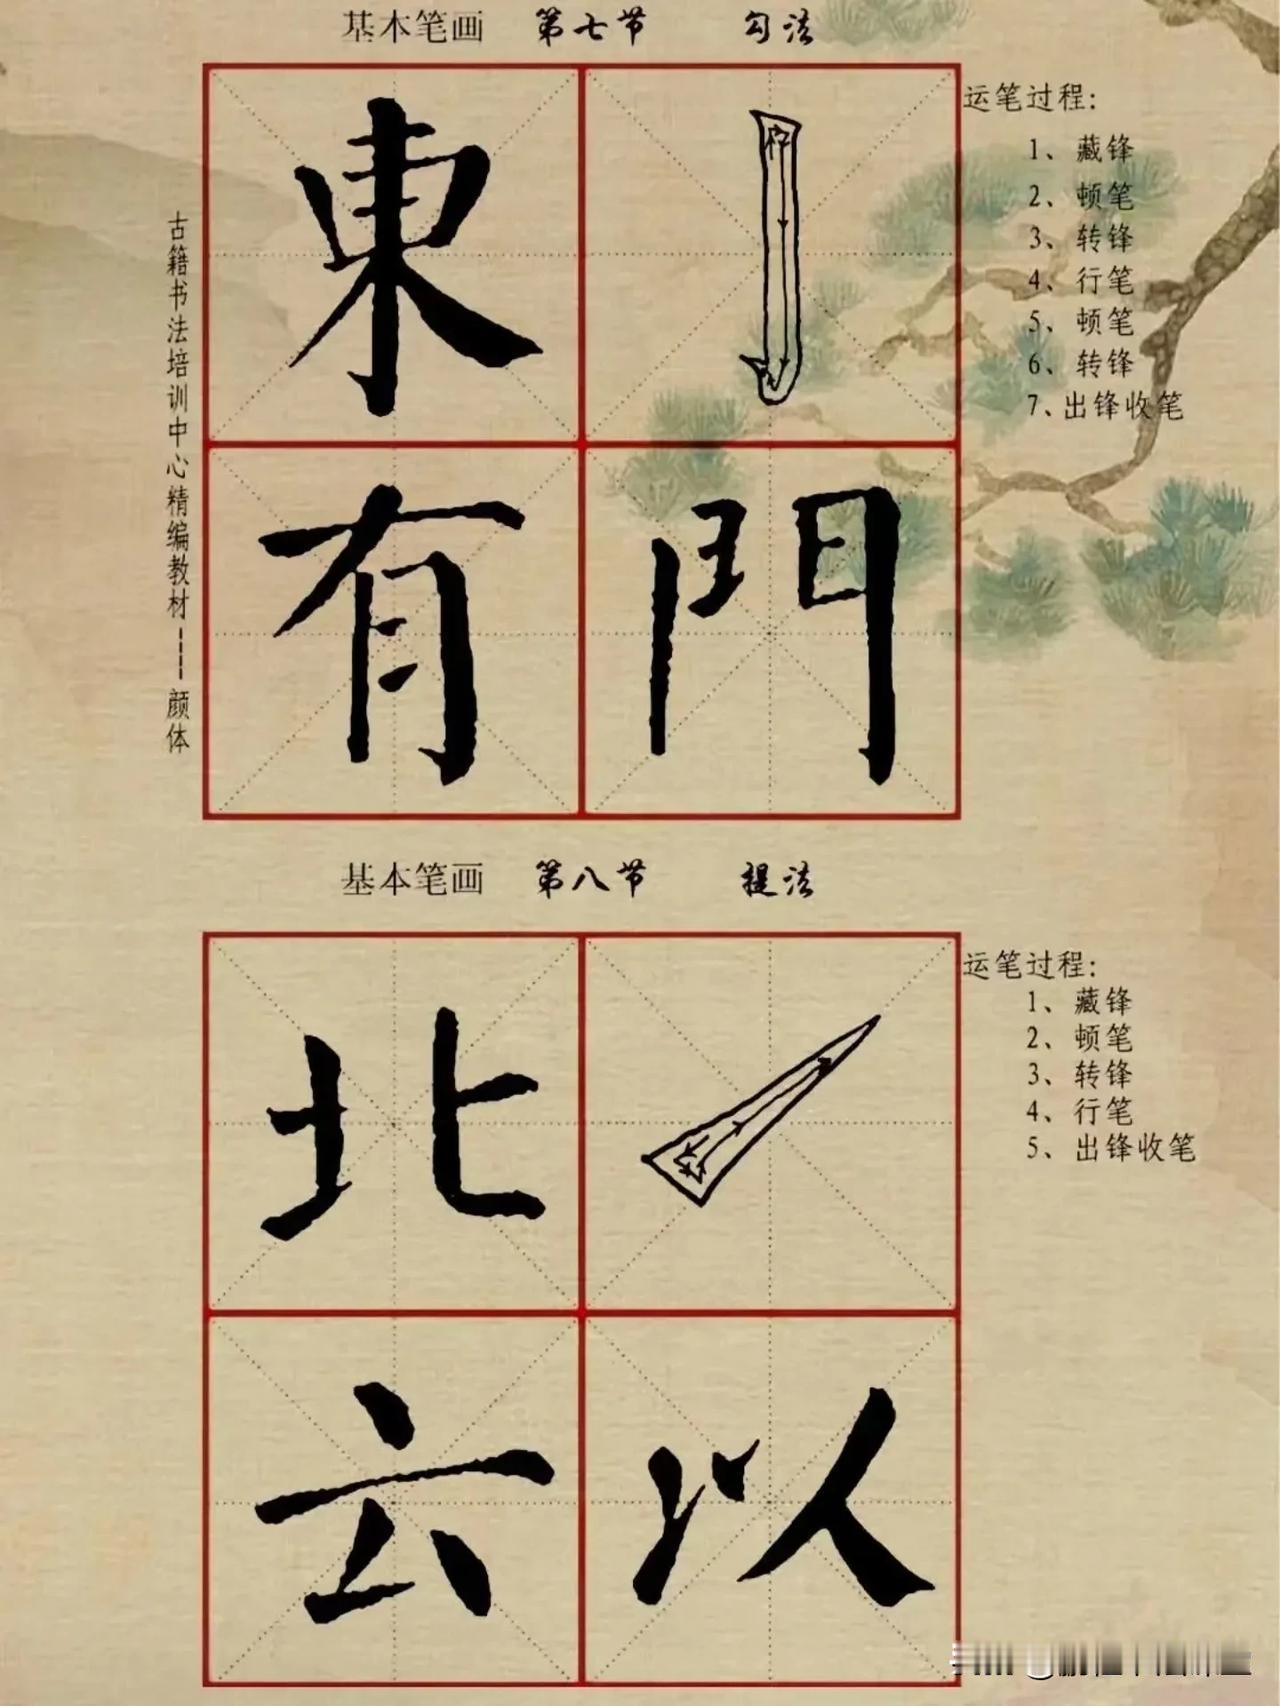 基本笔画 第七节 勾法
古籍书法培训中心精编教材----颜体
東
有 門
运笔过程：
1、藏锋
2、顿笔
3、转锋
4、行笔
5、顿笔
6、转锋
7、出锋收笔
基本笔画 第八节 提法
北
云 以
运笔过程：
1、藏锋
2、顿笔
3、转锋
4、行笔
5、出锋收笔